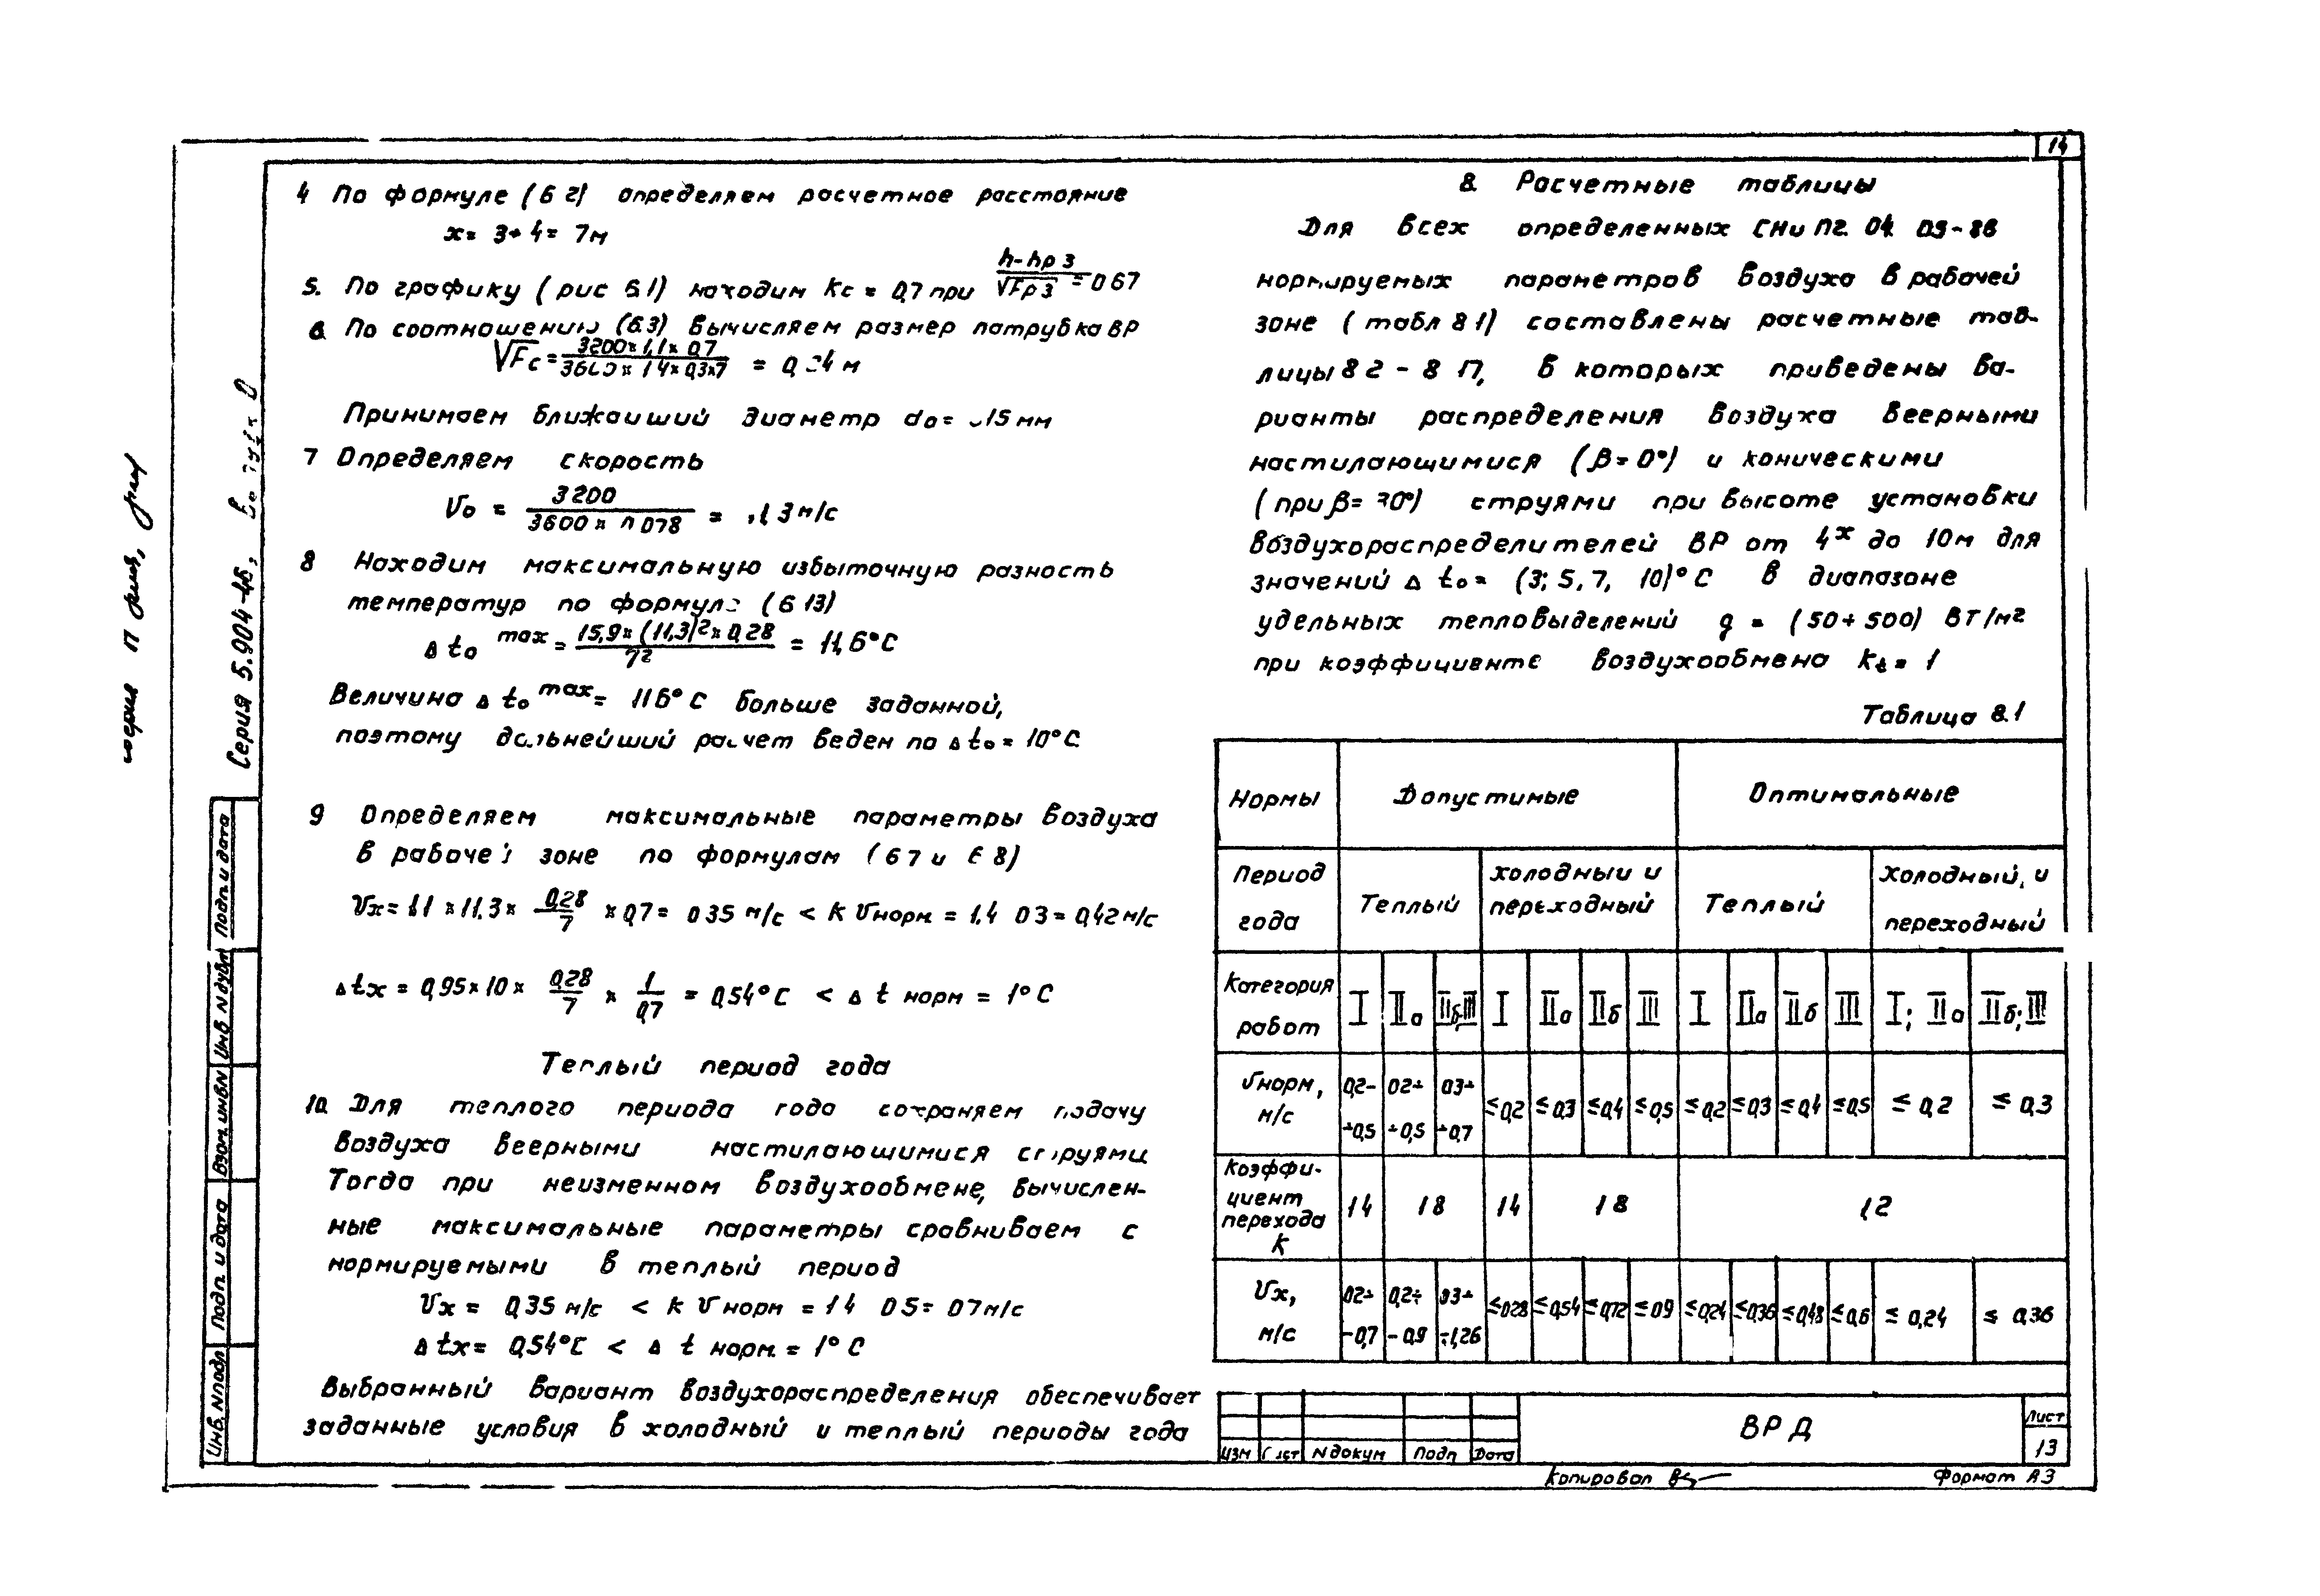 14
4 По формуле (6 2) определяем расчетное расстояние
x= 3+4= 7м
5. По графику (рис 6.1) находим Kc = 0,7 при h-hp з / √Fp з = 0 67
6. По соотношению (6.3) вычисляем размер патрубка ВР
√Fc = 3200×1,1×0,7 / 3600×1,4×0,3×7 = м
Принимаем ближаиший диаметр do= 15 мм
7 Определяем скорость
Vo = 3200 / 3600 × 0 078 = 3 м/с
8 Находим максимальную избыточную разность
температур по формуле (6 13)
Δ to max = 15,9×(11,3)2×0,28 / 72 = 11,6°С
Величина Δ to max = 11 6°С больше заданной,
поэтому дальнейший расчет ведем по Δ to = 10°С
9 Определяем максимальные параметры воздуха
в рабочей зоне по формулам (6 7 и 6 8)
Vx = 1.1 × 11.3 × 0,28 / 7 × 0,7 = 0 35 м/с < K Vнорм. = 1.4 0 3 = 0,42 м/с
Δtx = 0,95×10× 0,28 / 7 × 1 / 0,7 = 0,54°С < Δ t норм = 1°С
Теплый период года
10. Для теплого периода года сохраняем подачу
воздуха веерными настилающимися струями.
Тогда при неизменном воздухообмене, вычислен-
ные максимальные параметры сравниваем с
нормируемыми в теплый период
Vx = 0,35 м/с < K Vнорм = 1 4 0 5 = 0 7 м/с
Δ tx = 0,54°С < Δ t норм. = 1°С
Выбранный вариант воздухораспределения обеспечивает
заданные условия в холодный и теплый периоды года
8. Расчетные таблицы
Для всех определенных СНиП2. 04. 05-86
нормируемых параметров воздуха в рабочей
зоне (табл 8 1) составлены расчетные таб-
лицы 8 2 - 8 17, в которых приведены ва-
рианты распределения воздуха веерными
настилающимися (β= 0°) и коническими
(при β= 30°) струями при высоте установки
воздухораспределителей ВР от 4х до 10м для
значений Δ to= (3; 5, 7, 10)°С в диапазоне
удельных тепловыделений q = (50÷500) Вт/м2
при коэффициенте воздухообмена Kt = 1
Таблица 8.1
Нормы Допустимые Оптимальные
Период года Теплый холодный и переходный Теплый Холодный, и переходный
Категория работ I IIа IIб,III I IIа IIб III I IIа IIб III I; IIа IIб; III
Vнорм, м/с 0,2÷ ÷0,5 0 2÷ ÷0,5 0,3÷ ÷0,7 ≤0,2 ≤0,3 ≤0,4 ≤0,5 ≤0,2 ≤0,3 ≤0,4 ≤0,5 ≤ 0,2 ≤ 0,3
Коэффи-
циент
перехода
K 1 4 1 8 1 4 1 8 1,2
Vx, м/с 0 2÷ ÷0,7 0,2÷ ÷0,9 0,3÷ ÷1,26 ≤0,28 ≤0,54 ≤0,72 ≤0 9 ≤0,24 ≤0,36 ≤0,48 ≤0,6 ≤ 0,24 ≤ 0,36
Изм Лист N докум Подп Дата
ВР Д
Лист
13
Копировал
Формат А3
Серия 5.904-46,
Подп. и дата
Инв N дубл
Взам. инв N
Подп. и дата
Инв. N подл